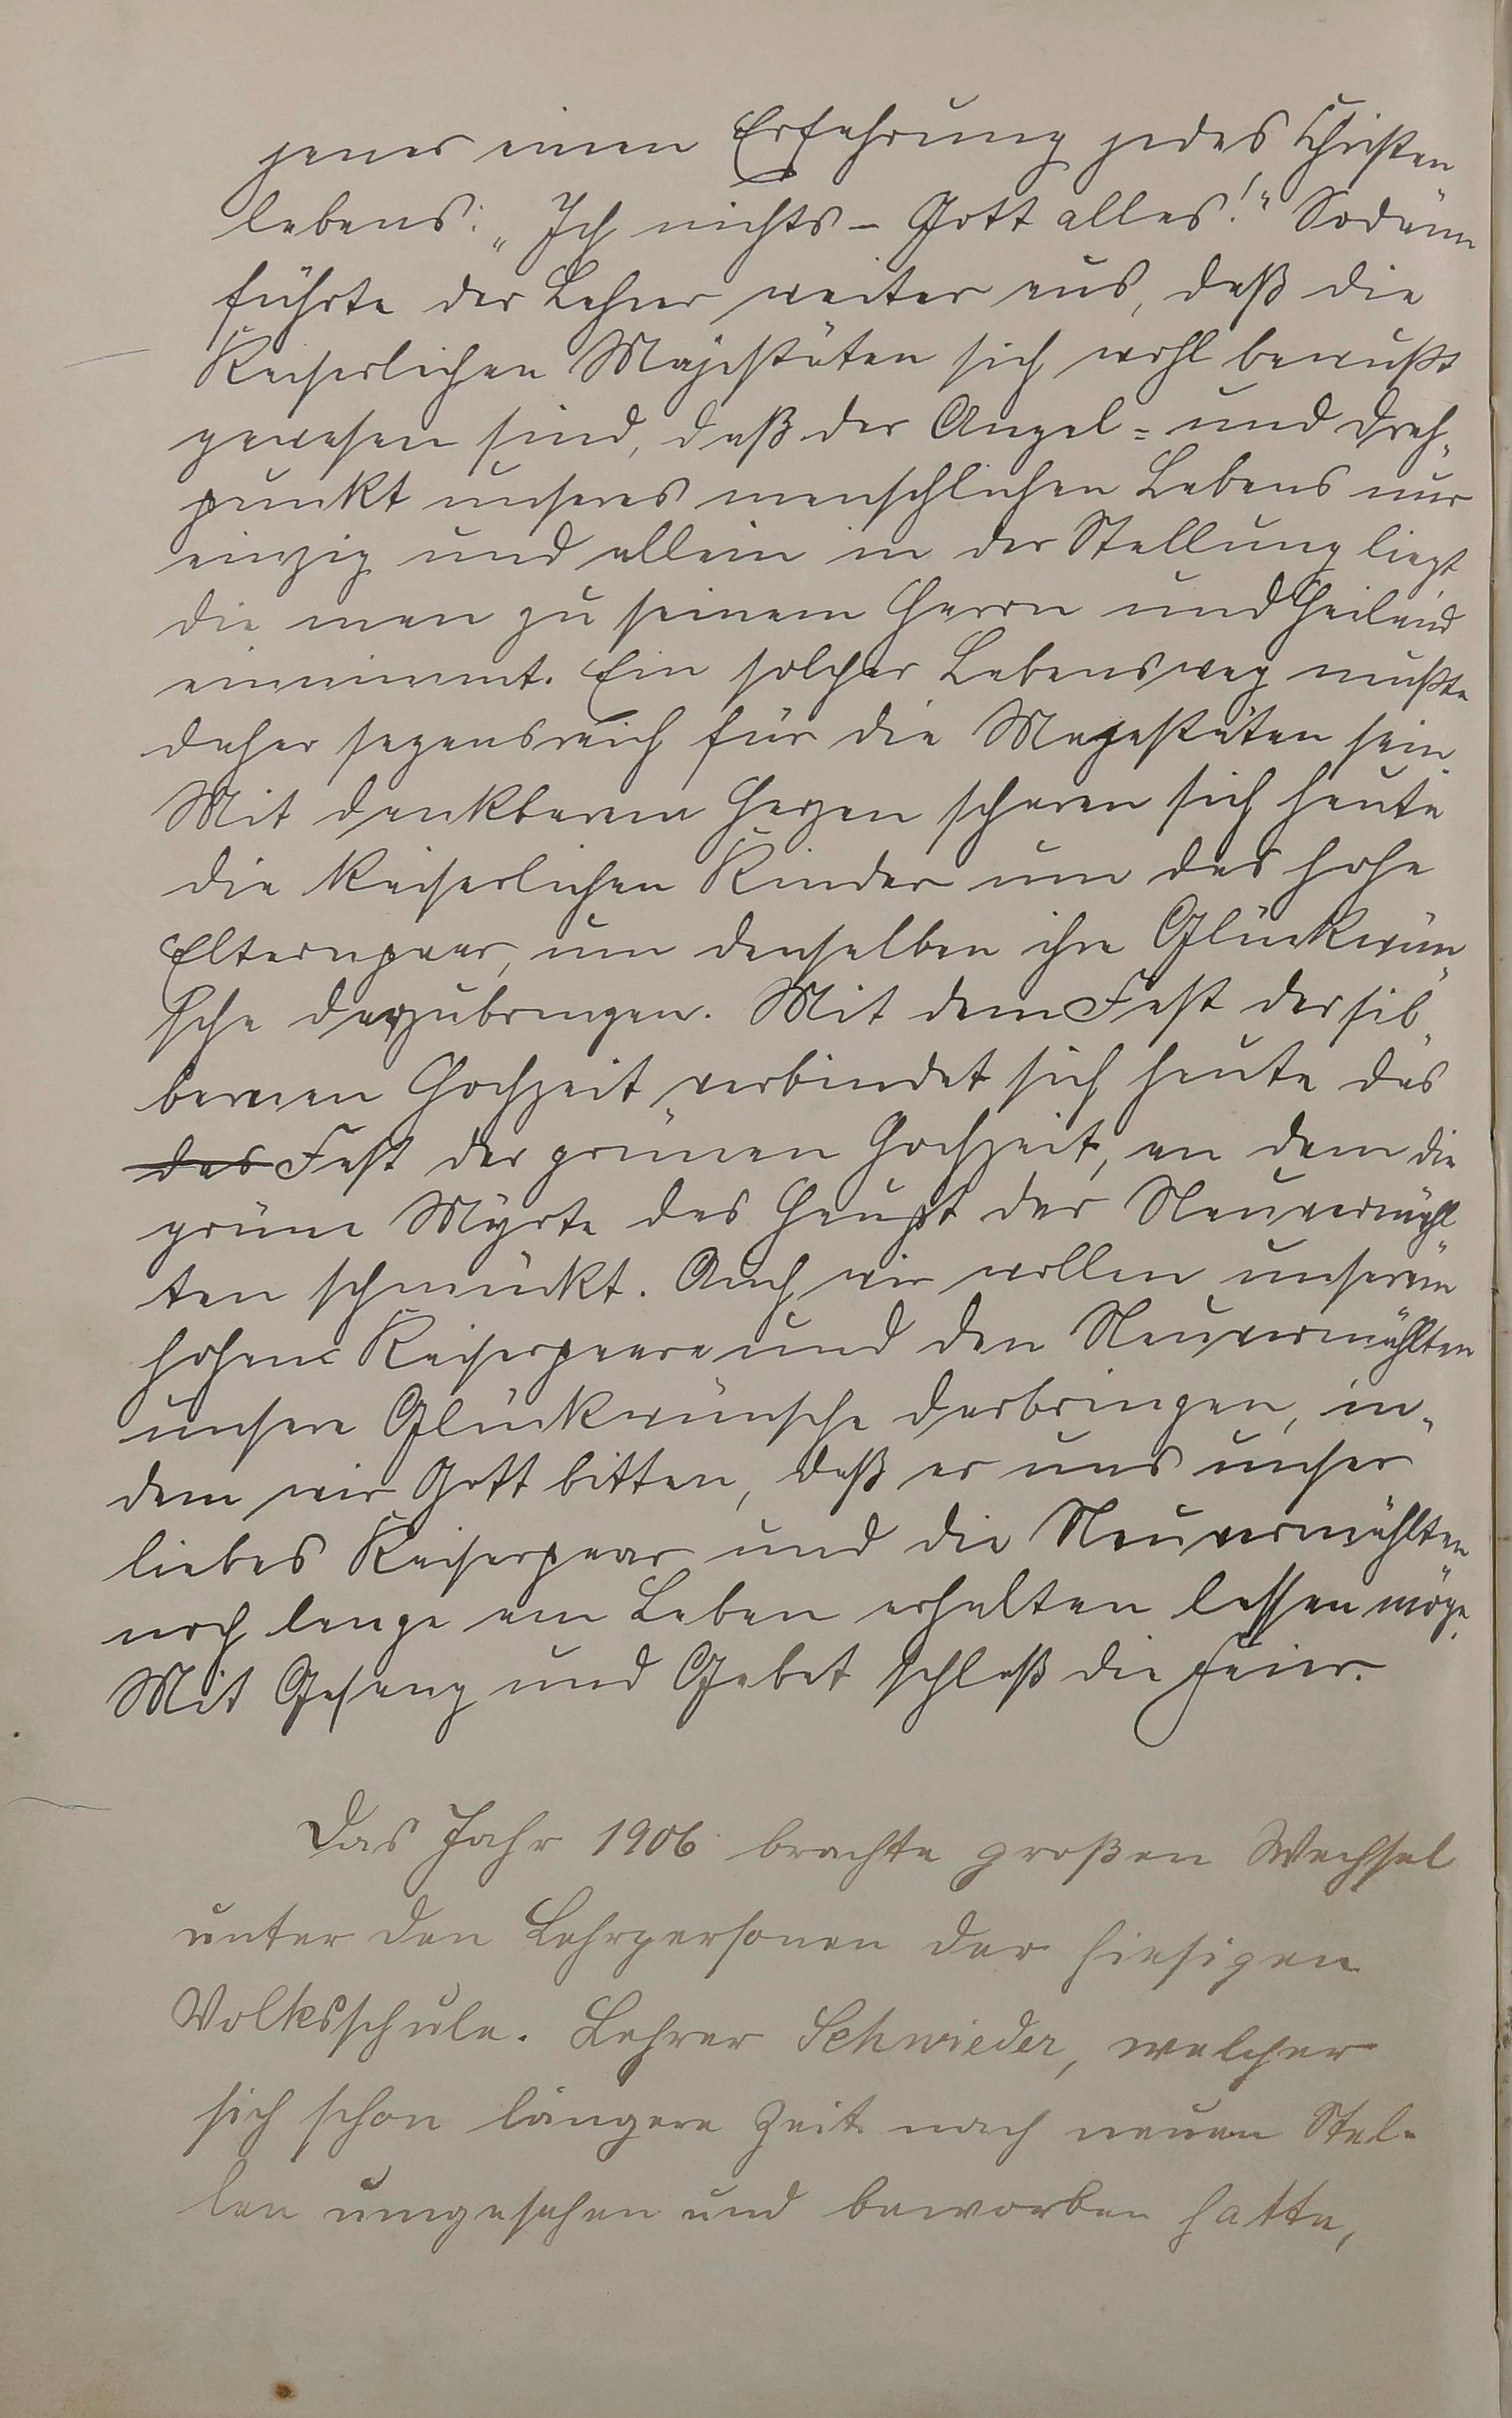 jener einen Erfahrung jedes Christen
lebens: „Ich nichts – Gott alles!" Sodann
führte der Lehrer weiter aus, daß die
Kaiserlichen Majestäten sich wohl bewußt
gewesen sind, daß der Angel- und Dreh-
punkt unseres menschlichen Lebens nur
einzig und allein in der Stellung liegt
die man zu seinem Herrn und Heiland
einnimmt. Ein solcher Lebensweg mußte
daher segensreich für die Majestäten sein.
Mit dankbarem Herzen scharen sich heute
die Kaiserlichen Kinder um das hohe
Elternpaar, um denselben ihre Glückwün-
sche darzubringen. Mit dem Fest der sil-
bernen Hochzeit verbindet sich heute das
das Fest der grünen Hochzeit, an dem die
grüne Myrte das Haupt der Neuvermähl-
ten schmückt. Auch wir wollen unserem
hohen Kaiserpaare und den Neuvermählten
unsere Glückwünsche darbringen, in-
dem wir Gott bitten, daß er uns unser
liebes Kaiserpaar und die Neuvermählten
noch lange am Leben erhalten lassen möge.
Mit Gesang und Gebet schloß die Feier.
Das Jahr 1906 brachte großen Wechsel
unter den Lehrpersonen der hiesigen
Volksschule. Lehrer Schwieder, welcher
sich schon längere Zeit nach neuen Stel-
len umgesehen und beworben hatte,